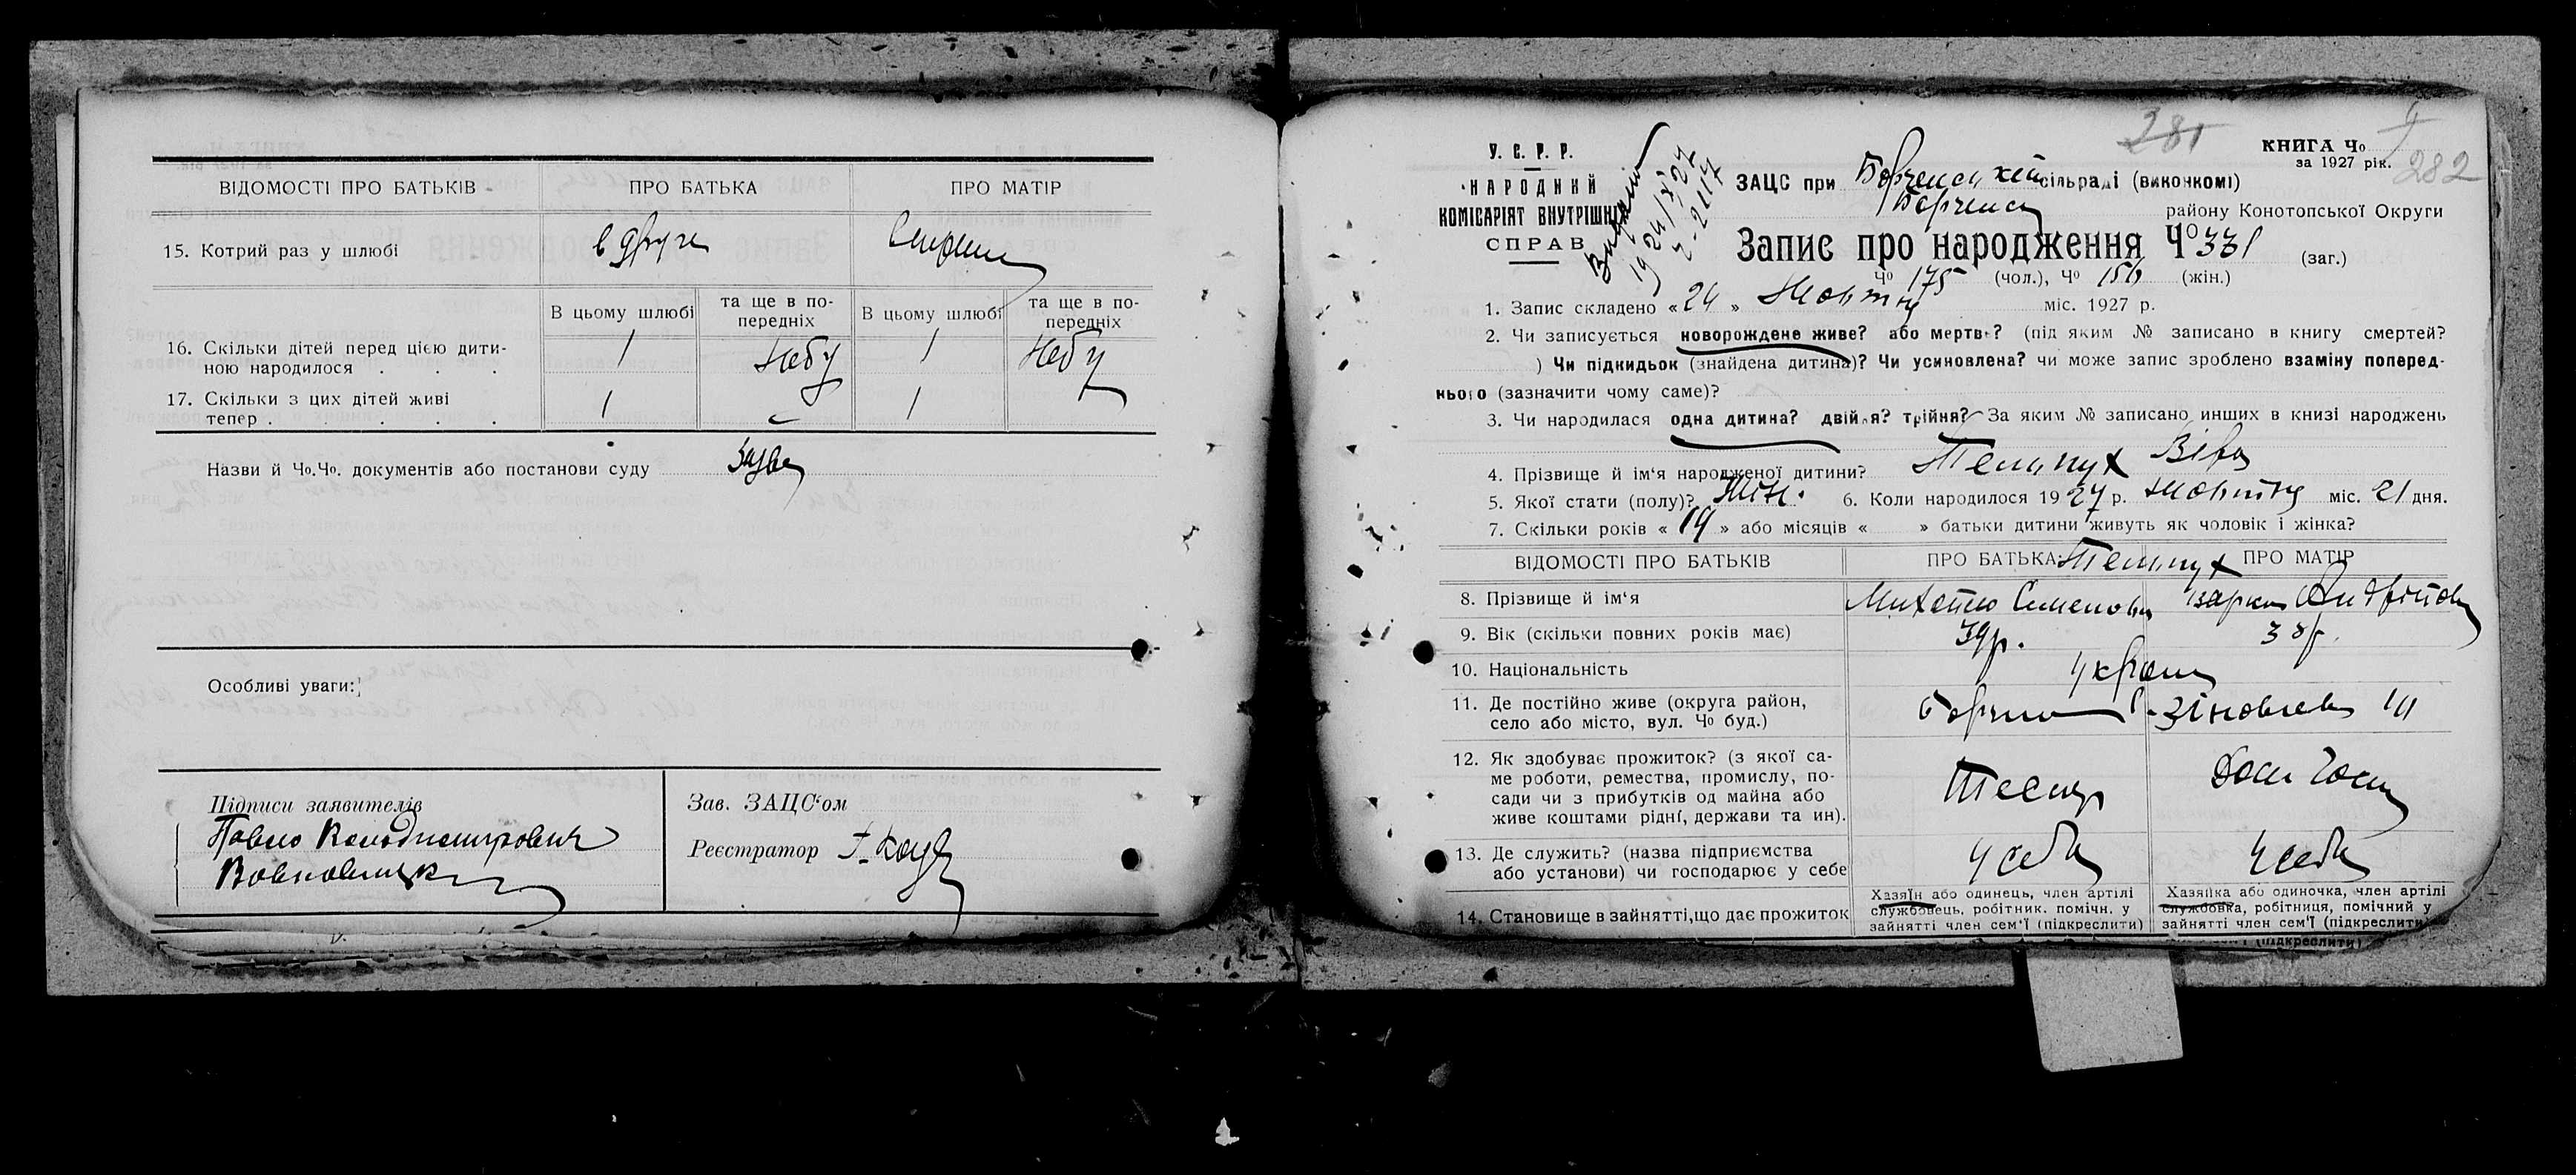 ВІДОМОСТІ ПРО БАТЬКІВ ПРО БАТЬКА ПРО МАТІР
15. Котрий раз у шлюбі
В цьому шлюбі та ще в по-передніх В цьому шлюбі та ще в по-передніх
16. Скільки дітей перед цією дити-
ною народилося . . . 1 Небу 1 Небу
17. Скільки з цих дітей живі
тепер . . . . . 1 - 1
Назви й Чо.Чо. документів або постанови суду
Особливі уваги:
Підписи заявителів
Павло Володимирович
Зав. ЗАЦС'ом
Реєстратор
281
У. С. Р. Р.
НАРОДНИЙ
КОМІСАРІЯТ ВНУТРІШНІХ
СПРАВ
КНИГА Чо
за 1927 рік.
282
ЗАЦС при сільраді (виконкомі)
району Конотопської Округи
Запис про народження Чо 331 (заг.)
Чо 175 (чол.), Чо 156 (жін.)
1. Запис складено « 24 » Жовтня міс. 1927 р.
2. Чи записується новорождене живе? або мертве? (під яким № записано в книгу смертей?
) Чи підкидьок (знайдена дитина)? Чи усиновлена? чи може запис зроблено взаміну поперед-
нього (зазначити чому саме)?
3. Чи народилася одна дитина? двійня? трійня? За яким № записано инших в книзі народжень
4. Прізвище й ім'я народженої дитини? Віра
5. Якої стати (полу)? Жін. 6. Коли народилося 1927 р. Жовтня міс. 21 дня.
7. Скільки років « » або місяців « » батьки дитини живуть як чоловік і жінка?
ВІДОМОСТІ ПРО БАТЬКІВ ПРО БАТЬКА ПРО МАТІР
8. Прізвище й ім'я Михайло Семенович Варка Андріївна
9. Вік (скільки повних років має) 39р. 38р.
10. Національність Україн
11. Де постійно живе (округа район,
село або місто, вул. Чо буд.)
12. Як здобуває прожиток? (з якої са-
ме роботи, ремества, промислу, по-
сади чи з прибутків од майна або
живе коштами рідні, держави та ин). Тесляр
13. Де служить? (назва підприємства
або установи) чи господарює у себе У себе У себе
14. Становище в зайнятті, що дає прожиток
Хазяїн або одинець, член артілі
службовець, робітник, помічн. у
зайнятті член сем'ї (підкреслити)
Хазяйка або одиночка, член артілі
службовка, робітниця, помічний у
зайнятті член сем'ї (підкреслити)
(підкреслити)